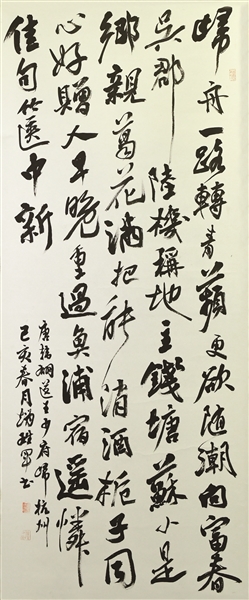 歸舟一路轉青蘋更欲随潮向富春
吳郡陸機稱地主錢塘蘇小是
鄉親葛花滿把能消酒梔子同
心好贈人早晚重過魚浦宿遥憐
佳句篋中新
唐韓翃送王少府歸杭州
己亥春月書